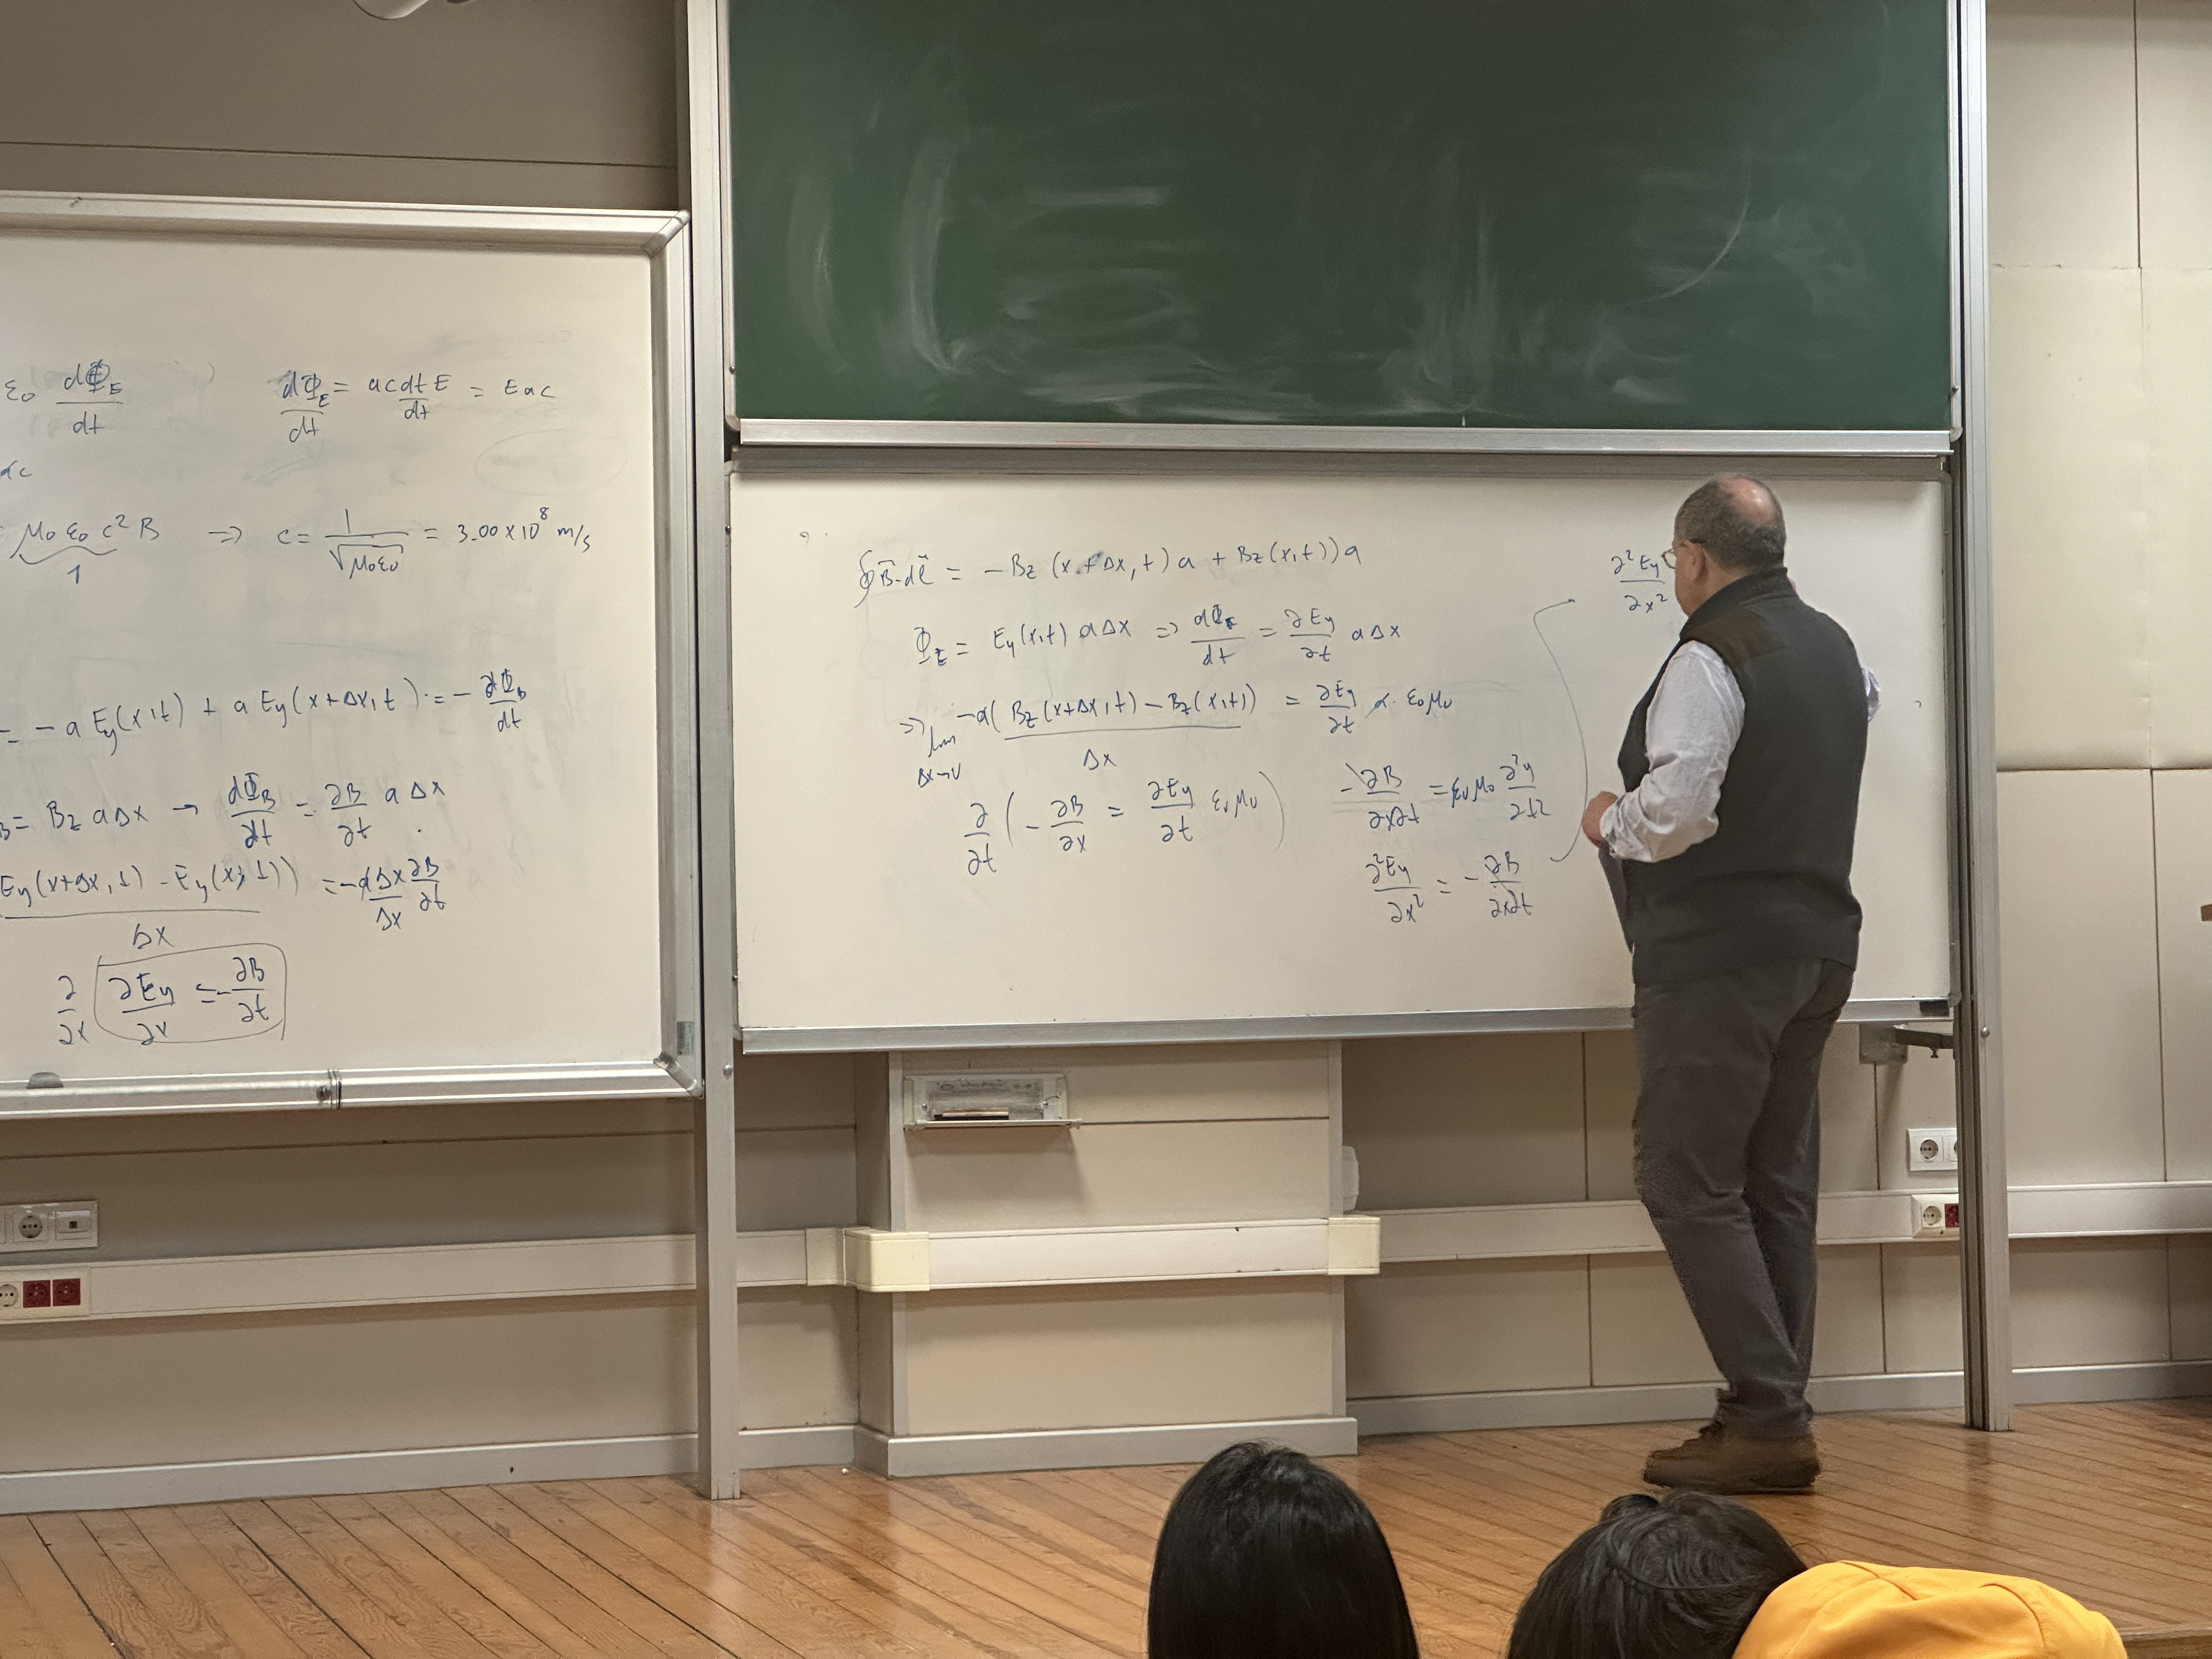 ε₀ dΦ_E/dt    dΦ_E/dt = ac dt E/dt = Eac
ac
μ₀ε₀c²B ⇒ c = 1/√μ₀ε₀ = 3.00×10⁸ m/s
1
= -a E_y(x,t) + a E_y(x+Δx,t) = - dΦ_B/dt
B = B_z aΔx → dΦ_B/dt = ∂B/∂t a Δx
E_y(x+Δx,t) - E_y(x,t))/Δx = -aΔx/Δx ∂B/∂t
∂/∂x ∂E_y/∂x = -∂B/∂t
∮B⃗·dℓ⃗ = -B_z(x+Δx,t)a + B_z(x,t))a
Φ_E = E_y(x,t) aΔx ⇒ dΦ_E/dt = ∂E_y/∂t aΔx
⇒ lim Δx→0 -a(B_z(x+Δx,t) - B_z(x,t))/Δx = ∂E_y/∂t a · ε₀μ₀
∂/∂t (-∂B/∂x = ∂E_y/∂t ε₀μ₀)
-∂B/∂x∂t = ε₀μ₀ ∂²y/∂t²
∂²E_y/∂x² = -∂B/∂x∂t
∂²E_y/∂x²